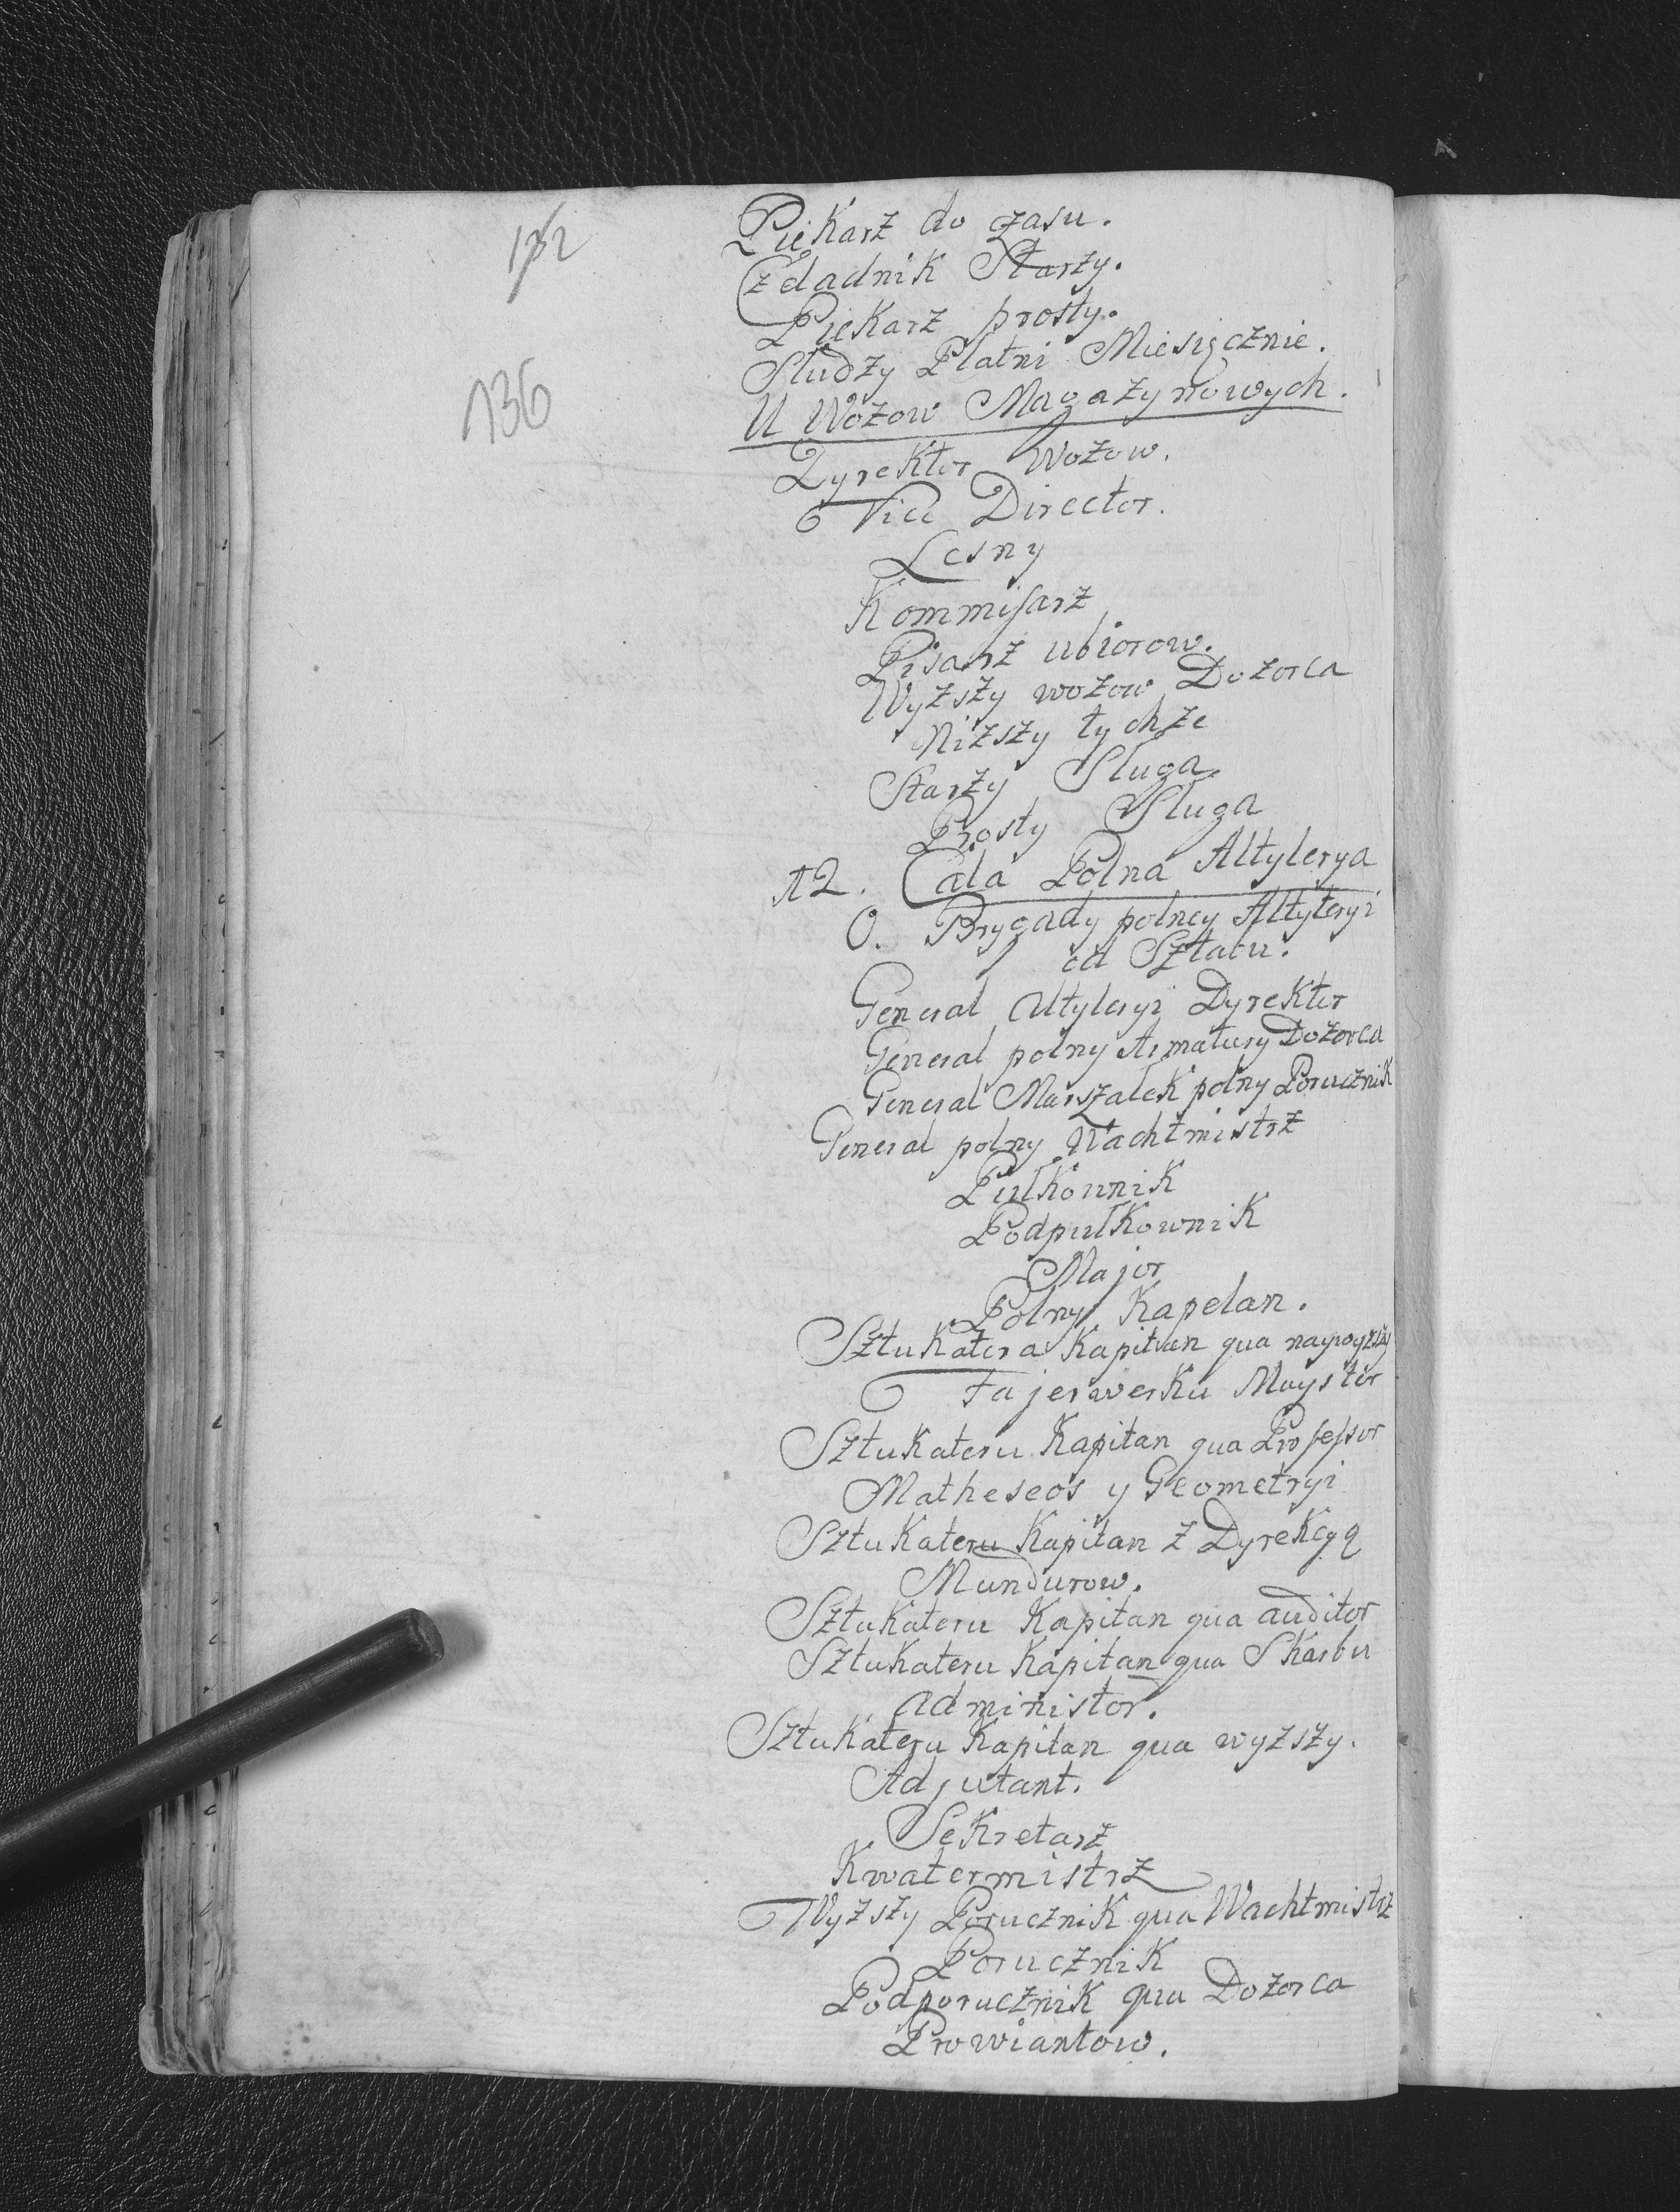 172
136
Piekarz do czasu.
Czeladnik Starzy.
Piekarz prosty.
Studzy Platni Miesięcznie.
U Wozow Magazynowych.
Dyrektor Wozow.
Vice Director.
Lesny
Kommisarz
Pisarz ubiorow.
Wyzszy wozow Dozorca
Nizszy tychze
Starzy Sluga.
Prosty Sluga
12. Cala Polna Altylerya
O. Brygady polney Altyleryi
od Sztatu.
General Altyleryi Dyrektor
General polny Armatury Dozorca
General Marszalek polny Porucznik
General polny Wachtmistrz
Pulkownik
Podpulkownik
Major
Polny Kapelan.
Sztukatera Kapitan qua naywyzszy
Fajerwerku Maystor
Sztukateru Kapitan qua Professor
Matheseos y Geometryi
Sztukateru Kapitan z Dyrekcyą
Mundurow.
Sztukateru Kapitan qua auditor
Sztukateru Kapitan qua Skarbu
administor.
Sztukateru Kapitan qua wyzszy.
Adjutant.
Sekretarz
Kwatermistrz
Wyzszy Porucznik qua Wachtmistrz
Porucznik
Podporucznik qua Dozorca
Prowiantow.